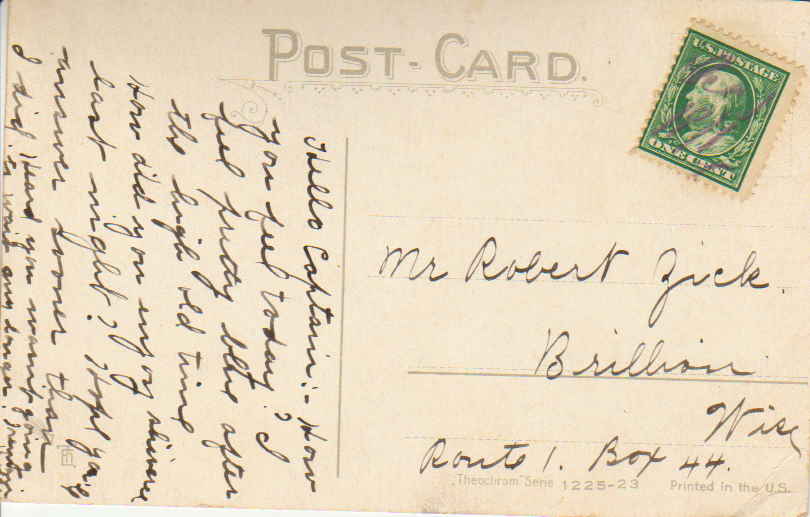 POST-CARD.
U.S. POSTAGE
ONE CENT
Hello Captain:- How
you feel today? I
feel pretty blue after
the high old time
How did you enjoy
last night? Hope you'll
answer sooner than
I did. Heard you wasn't going
to wait any longer.
Mr Robert Zick.
Brillion
Wis
Route 1. Box 44.
"Theochrom" Serie 1225-23 Printed in the U.S.